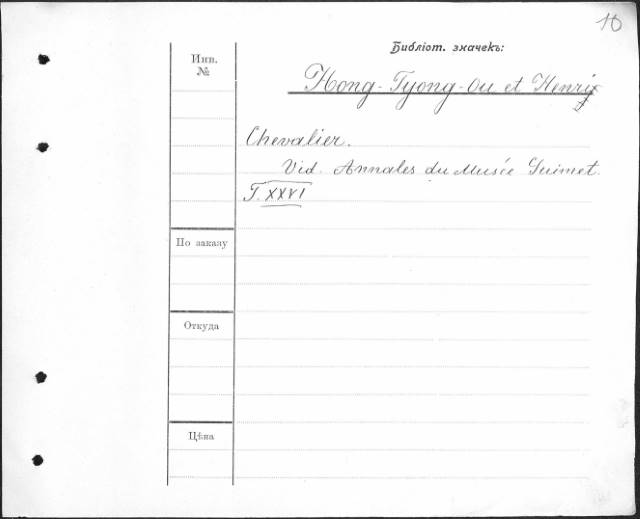 10
Библіот. значекъ:
Инв.
№
Hong-Tyong-Ou et Henri
Chevalier.
Vid. Annales du Musée Guimet.
T. XXVI
По заказу
Откуда
Цѣна